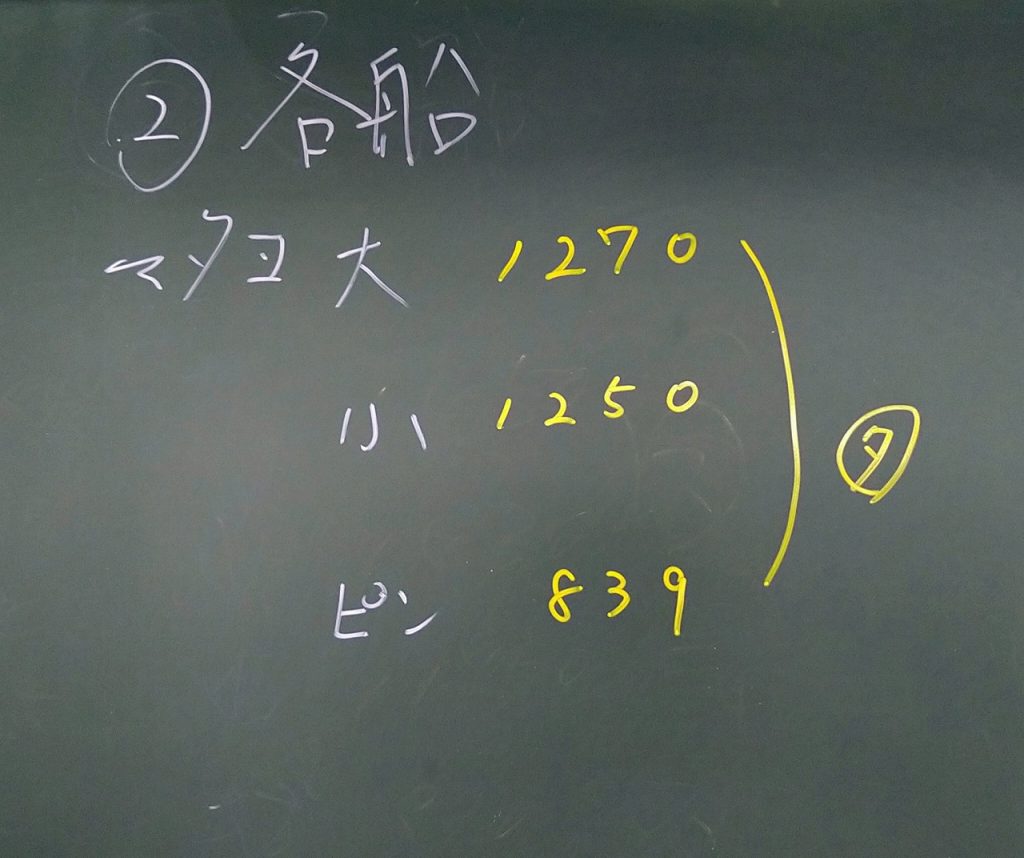 ② 各船
マダコ 大 1270
小 1250
ピン 839
㋟